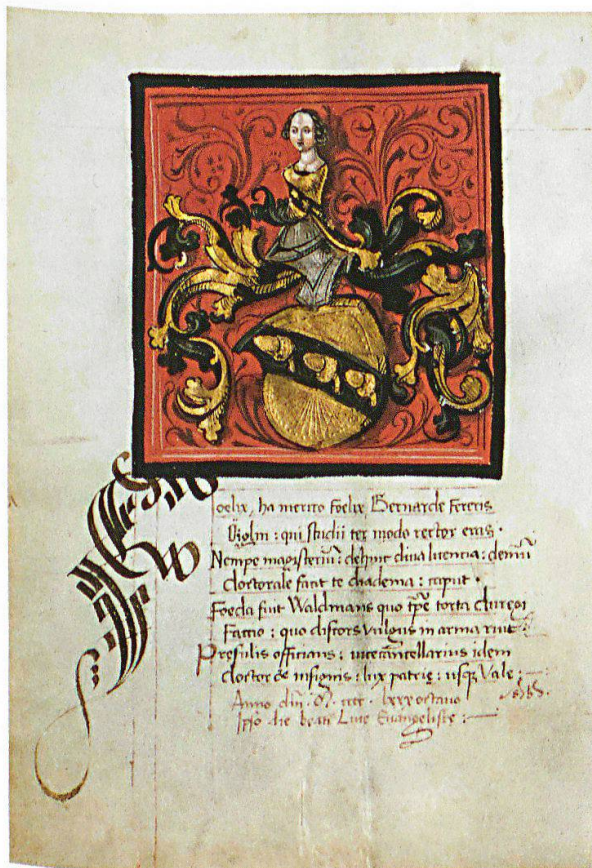 Foelix, ha merito foelix Bernarde fereris
Öiolm : qui studii ter modo rector eras ·
Nempe magisteriū : dehinc diua licencia : demū
doctorale facit te diadema : caput ·
Foeda fuit Waldmans quo tpe torta
Factio : quo discors vulgus in arma ruit :
Presulis officians : vicecancellarius idem
doctor & insignis : lux patrię : usq Vale :
Anno dm̄ · cccc · lxxx octauo
Ipso die beati Luce Euangelistę :